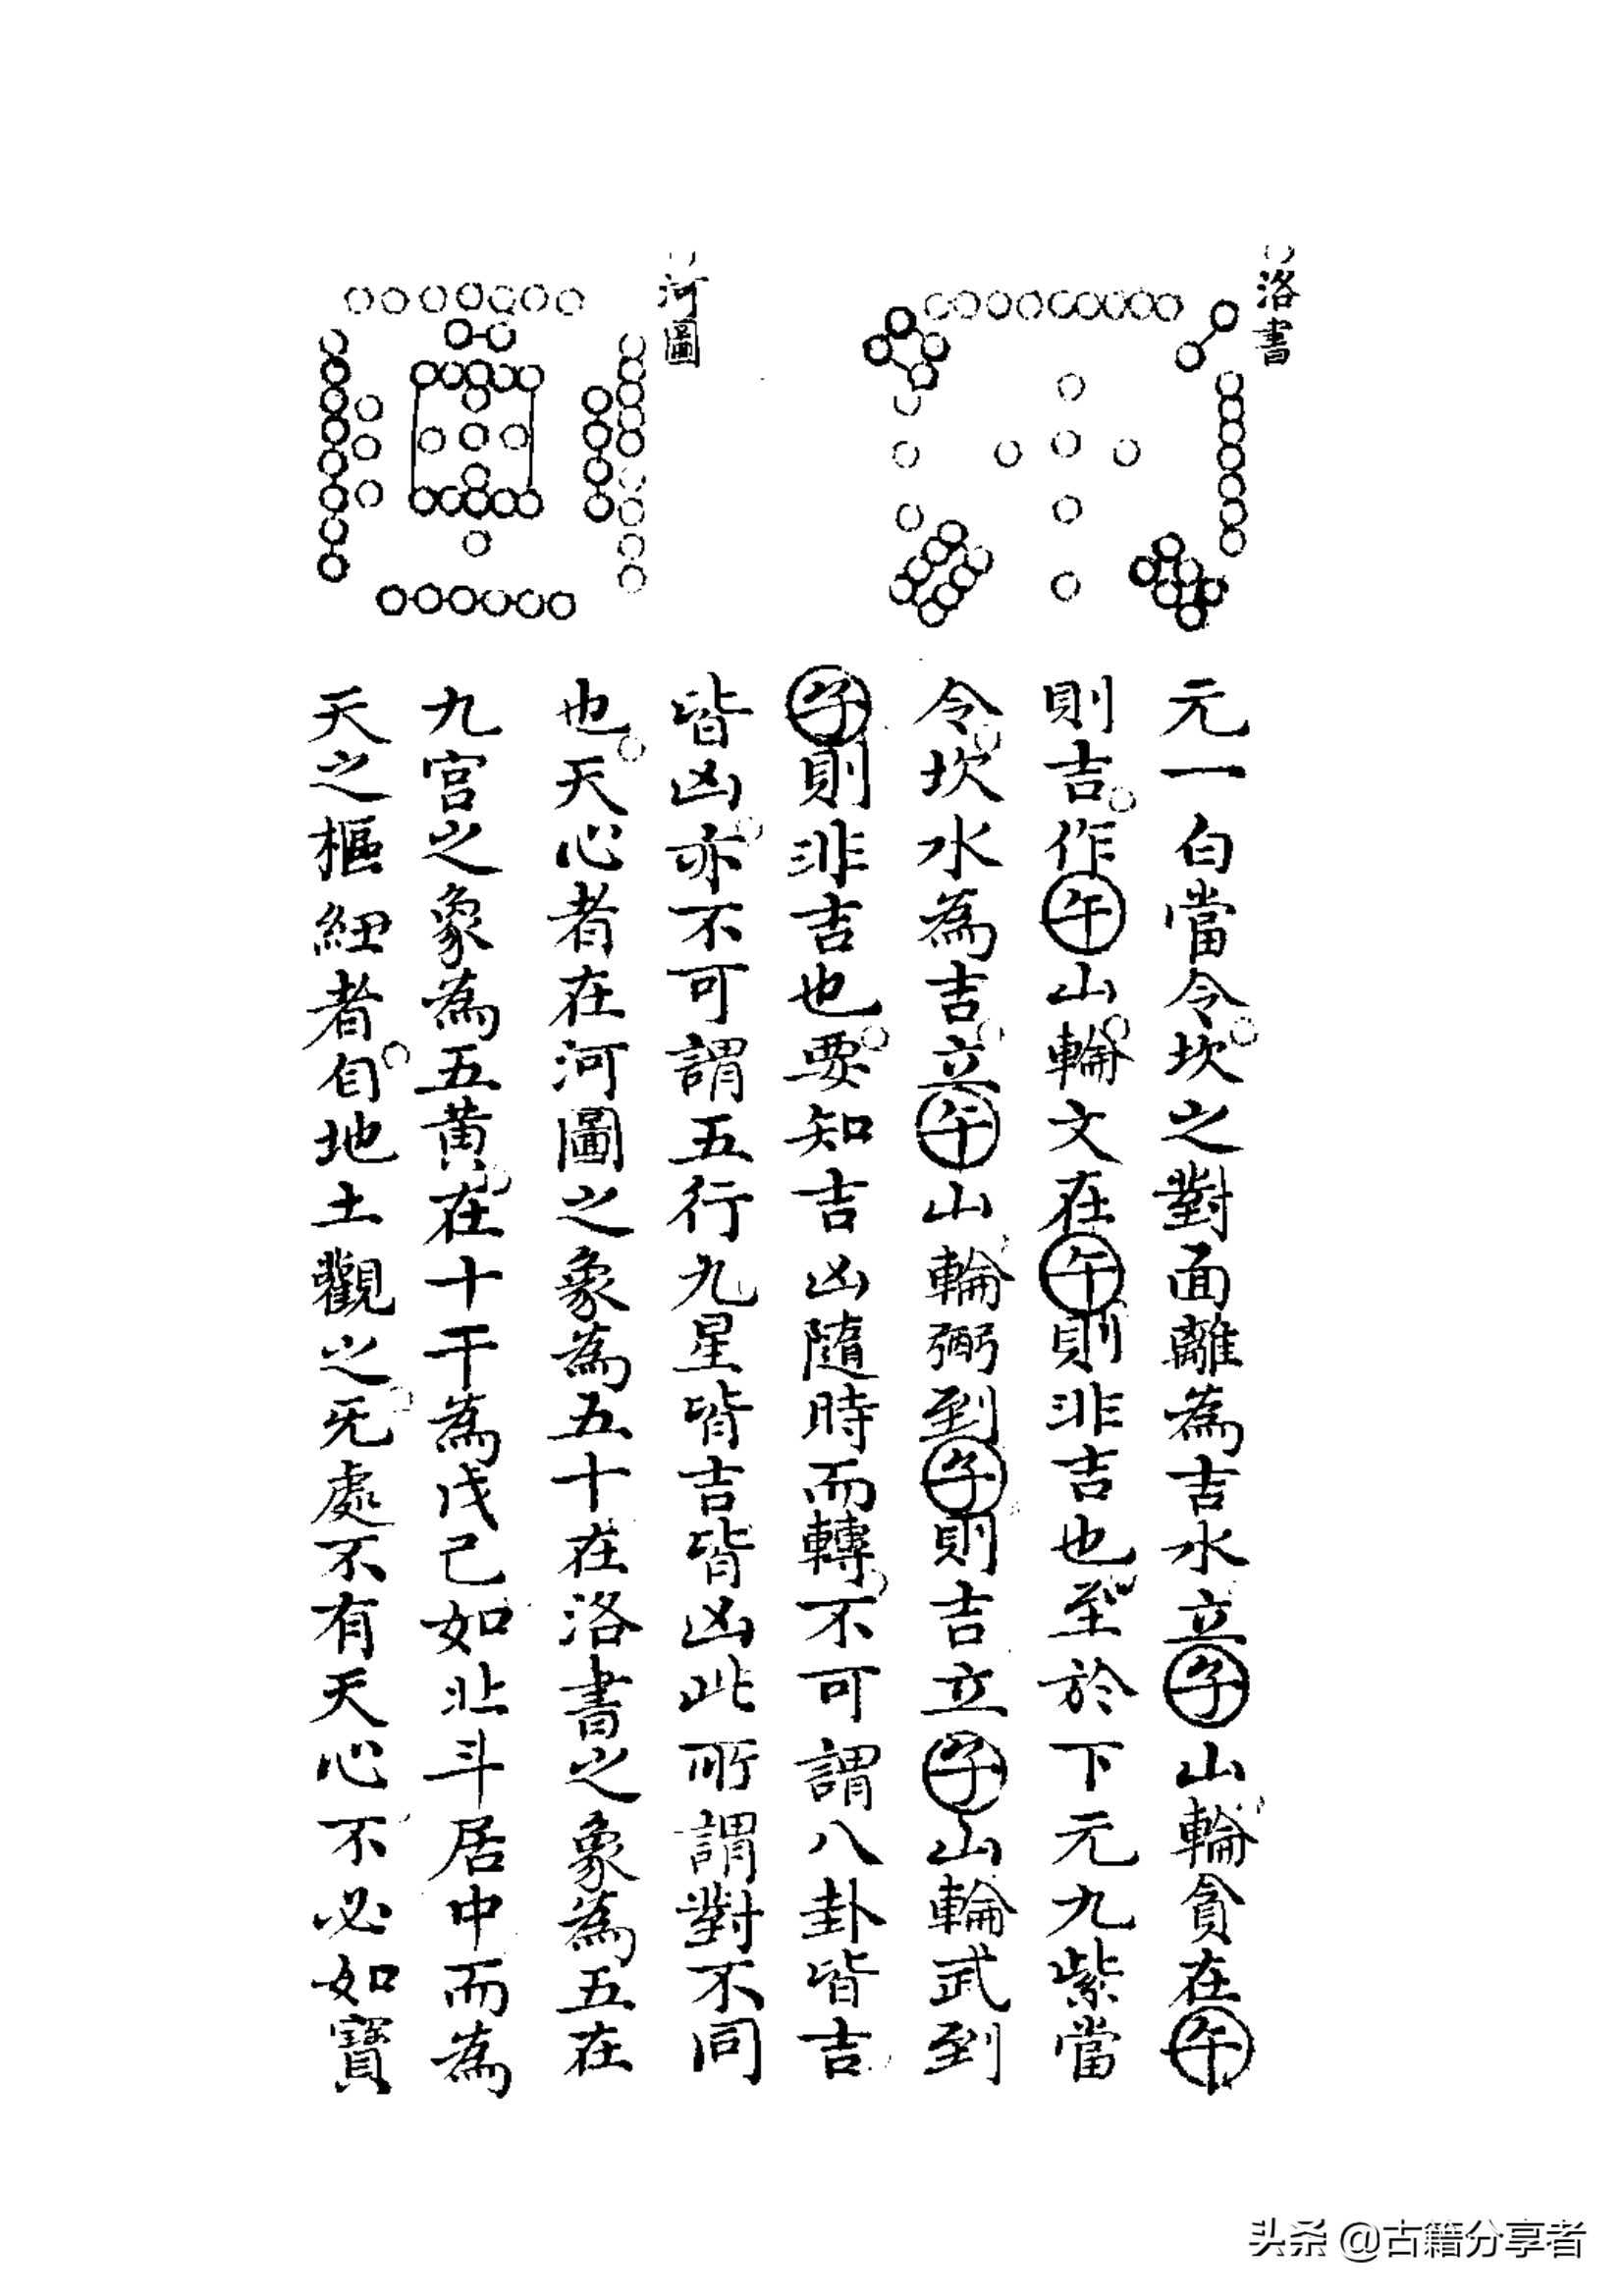 洛書
河圖
元一白當令坎之對面離為吉水立子山輪貪在午
則吉作午山輪文在午則非吉也至於下元九紫當
令坎水為吉立午山輪弼到子則吉立子山輪武到
子則非吉也要知吉凶隨時而轉不可謂八卦皆吉
皆凶亦不可謂五行九星皆吉皆凶此所謂對不同
也天心者在河圖之象為五十在洛書之象為五在
九宮之象為五黃在十干為戊己如北斗居中而為
天之樞紐者自地土觀之无處不有天心不必如寶
头条 @古籍分享者